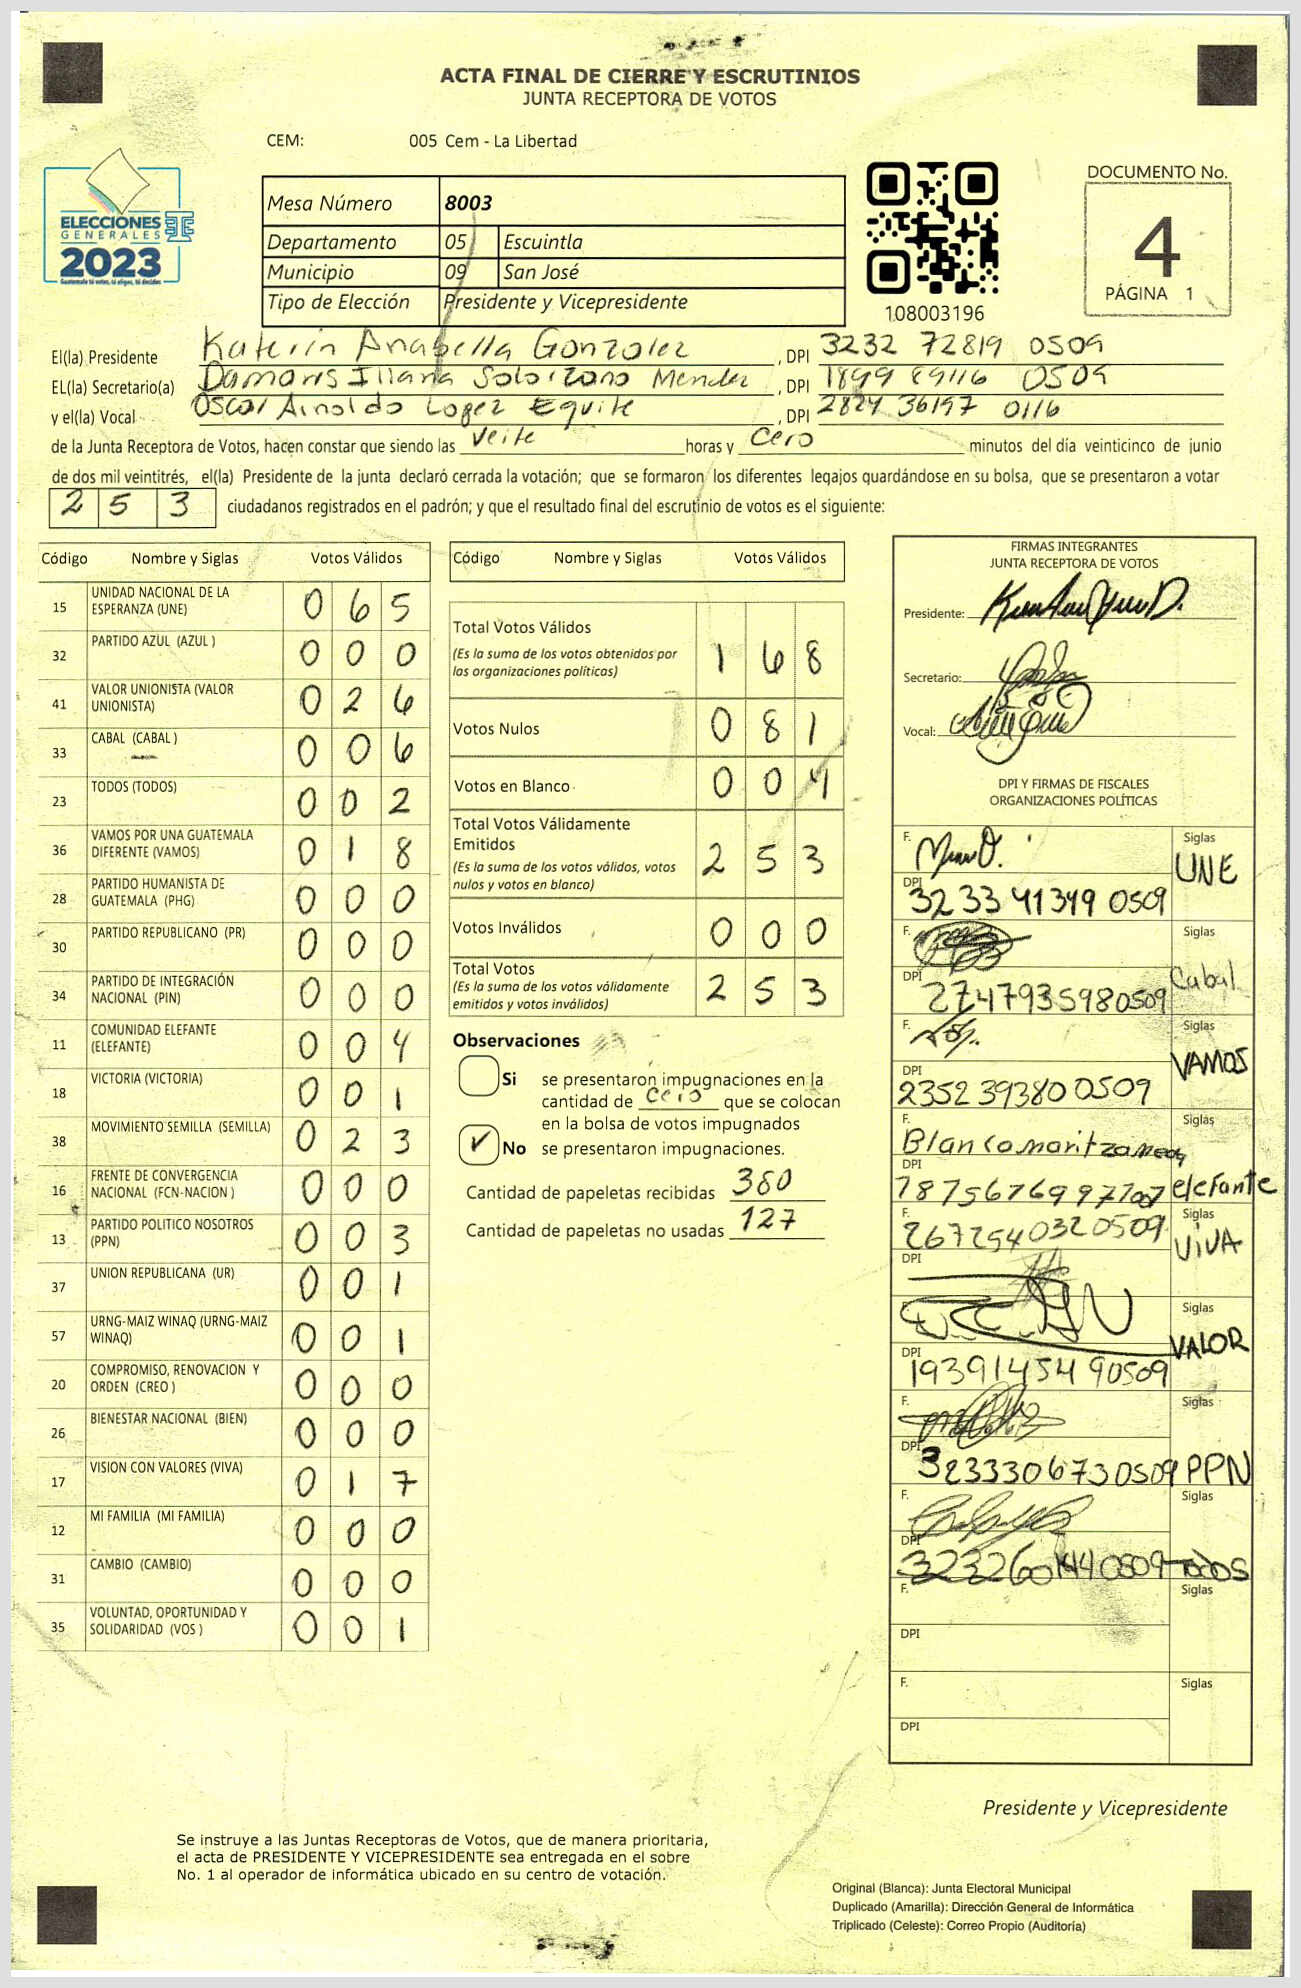 ACTA FINAL DE CIERRE Y ESCRUTINIOS
JUNTA RECEPTORA DE VOTOS
CEM: 005 Cem - La Libertad
ELECCIONES
GENERALES
2023
Guatemala tú votas, tú eliges, tú decides
Mesa Número 8003
Departamento 05 Escuintla
Municipio 09 San José
Tipo de Elección Presidente y Vicepresidente
108003196
DOCUMENTO No.
4
PÁGINA 1
El(la) Presidente Katerin Anabella Gonzolez , DPI 3232 72819 0509
EL(la) Secretario(a) Damaris Iliana Solorzano Mendez , DPI 1899 89116 0509
y el(la) Vocal Oscar Arnoldo Lopez Equite , DPI 2824 36197 0116
de la Junta Receptora de Votos, hacen constar que siendo las veite horas y cero minutos del día veinticinco de junio
de dos mil veintitrés, el(la) Presidente de la junta declaró cerrada la votación; que se formaron los diferentes legajos guardándose en su bolsa, que se presentaron a votar
2 5 3 ciudadanos registrados en el padrón; y que el resultado final del escrutinio de votos es el siguiente:
Código Nombre y Siglas Votos Válidos
15 UNIDAD NACIONAL DE LA ESPERANZA (UNE) 0 6 5
32 PARTIDO AZUL (AZUL ) 0 0 0
41 VALOR UNIONISTA (VALOR UNIONISTA) 0 2 6
33 CABAL (CABAL ) 0 0 6
23 TODOS (TODOS) 0 0 2
36 VAMOS POR UNA GUATEMALA DIFERENTE (VAMOS) 0 1 8
28 PARTIDO HUMANISTA DE GUATEMALA (PHG) 0 0 0
30 PARTIDO REPUBLICANO (PR) 0 0 0
34 PARTIDO DE INTEGRACIÓN NACIONAL (PIN) 0 0 0
11 COMUNIDAD ELEFANTE (ELEFANTE) 0 0 4
18 VICTORIA (VICTORIA) 0 0 1
38 MOVIMIENTO SEMILLA (SEMILLA) 0 2 3
16 FRENTE DE CONVERGENCIA NACIONAL (FCN-NACION ) 0 0 0
13 PARTIDO POLITICO NOSOTROS (PPN) 0 0 3
37 UNION REPUBLICANA (UR) 0 0 1
57 URNG-MAIZ WINAQ (URNG-MAIZ WINAQ) 0 0 1
20 COMPROMISO, RENOVACION Y ORDEN (CREO ) 0 0 0
26 BIENESTAR NACIONAL (BIEN) 0 0 0
17 VISION CON VALORES (VIVA) 0 1 7
12 MI FAMILIA (MI FAMILIA) 0 0 0
31 CAMBIO (CAMBIO) 0 0 0
35 VOLUNTAD, OPORTUNIDAD Y SOLIDARIDAD (VOS ) 0 0 1
Código Nombre y Siglas Votos Válidos
Total Votos Válidos 1 6 8
(Es la suma de los votos obtenidos por
las organizaciones políticas)
Votos Nulos 0 8 1
Votos en Blanco 0 0 4
Total Votos Válidamente
Emitidos 2 5 3
(Es la suma de los votos válidos, votos
nulos y votos en blanco)
Votos Inválidos 0 0 0
Total Votos 2 5 3
(Es la suma de los votos válidamente
emitidos y votos inválidos)
Observaciones
Si se presentaron impugnaciones en la
cantidad de cero que se colocan
en la bolsa de votos impugnados
✓ No se presentaron impugnaciones.
Cantidad de papeletas recibidas 380
Cantidad de papeletas no usadas 127
FIRMAS INTEGRANTES
JUNTA RECEPTORA DE VOTOS
Presidente:
Secretario:
Vocal:
DPI Y FIRMAS DE FISCALES
ORGANIZACIONES POLÍTICAS
F. Siglas UNE
DPI 3233 41349 0509
F. Siglas Cabal
DPI 2747935980509
F. Siglas VAMOS
DPI 2352 39380 0509
F. Blanca maritza Siglas
DPI elefante
F. 2672540320509 Siglas VIVA
DPI
Siglas VALOR
DPI 1939145490509
F. Siglas
DPI 3233306730509 PPN
F. Siglas
DPI 3232601440509 TODOS
F. Siglas
DPI
F. Siglas
DPI
Presidente y Vicepresidente
Se instruye a las Juntas Receptoras de Votos, que de manera prioritaria,
el acta de PRESIDENTE Y VICEPRESIDENTE sea entregada en el sobre
No. 1 al operador de informática ubicado en su centro de votación.
Original (Blanca): Junta Electoral Municipal
Duplicado (Amarilla): Dirección General de Informática
Triplicado (Celeste): Correo Propio (Auditoría)